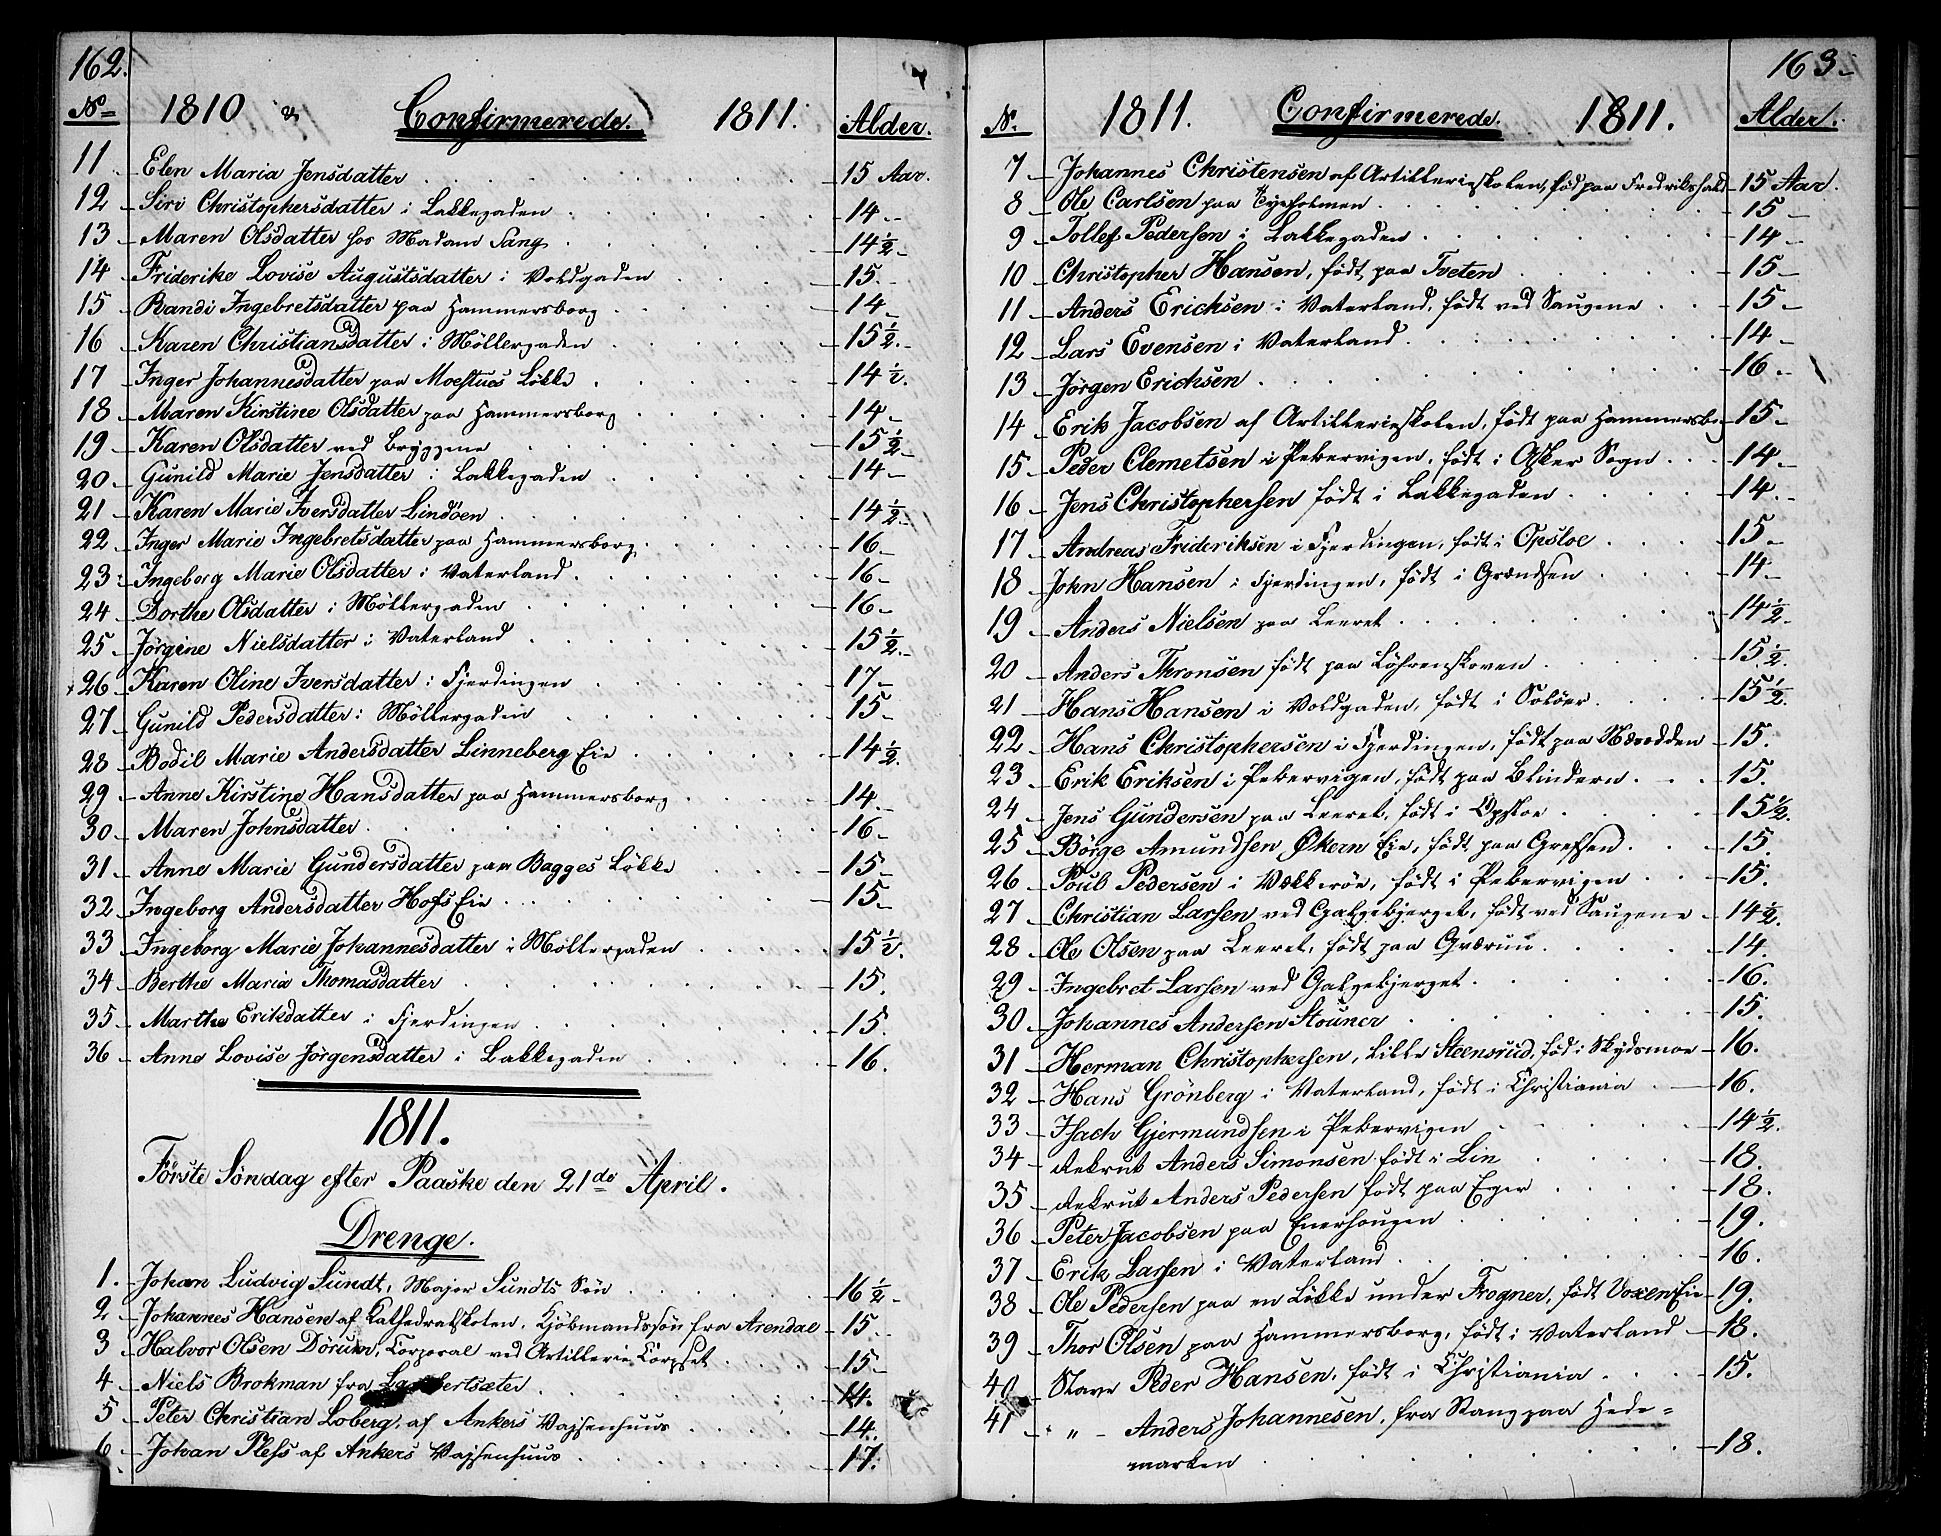 162.
No 1810 & Confirmerede. 1811. Alder.
11. Elen Maria Jensdatter 15 Aar.
12 Siri Christophersdatter i Lakkegaden 14
13 Maren Olsdatter hos Madam Sang 14½
14 Friderike Lovise Augustsdatter i Voldgaden 15.
15 Randi Ingebretsdatter paa Hammersborg 14
16 Karen Christiansdatter i Möllergaden 15½.
17 Inger Johannesdatter paa Moestues Lökke 14½.
18 Maren Kirstine Olsdatter paa Hammersborg 14
19 Karen Olsdatter ved Bryggene 15½
20 Gunild Marie Jensdatter i Lakkegaden 14
21 Karen Marie Iversdatter Lindöen 14½
22 Inger Marie Ingebretsdatter paa Hammersborg 16
23 Ingeborg Marie Olsdatter i Vaterland 16
24 Dorthe Olsdatter i Möllergaden 16
25 Jörgine Nielsdatter i Vaterland 15½.
26 Karen Oline Iversdatter i Fjerdingen 17
27 Gunild Pedersdatter i Möllergaden 15
28 Bodil Marie Andersdatter Linneberg Eie 14½.
29 Anne Kirstine Hansdatter paa Hammersborg 14.
30 Maren Johnsdatter 16
31 Anne Marie Gundersdatter paa Bagges Lökke 15
32 Ingeborg Andersdatter Hofs Eie 15
33 Ingeborg Marie Johannesdatter i Möllergaden 15½.
34 Berthe Maria Thomasdatter 15.
35 Marthe Erikdatter i Fjerdingen 15.
36 Anne Lovise Jörgensdatter i Lakkegaden 16.
1811.
Förste Söndag efter Paaske den 21de April.
Drenge.
1. Johan Ludvig Sundt, Major Sundts Sön 16½
2 Johannes Hansen af Kathedralskolen, Kjöbmandssön fra Arendal 15
3 Halvor Olsen Dörum, Corporal ved Artillerie Corpset 15
4 Niels Brokman fra 14.
5 Peter Christian Loberg, af Ankers Vajsenhuus 14.
6 Johan Pless af Ankers Vajsenhuus 17.
163
N. 1811. Confirmerede. 1811. Alder.
7 Johannes Christensen af Artillerieskolen, född paa Fredrikshald 15 Aar.
8 Ole Carlsen paa Tyveholmen 15
9 Tollef Pedersen i Lakkegaden 14
10 Christopher Hansen, född paa Tveten 15
11 Anders Ericksen i Vaterland, född ved Saugene 15
12 Lars Evensen i Vaterland 14
13 Jörgen Erichsen 16
14 Erik Jacobsen af Artillerieskolen, född paa Hammersbg 15
15 Peder Clemetsen i Pebervigen, född i Asker Sogn 14
16 Jens Christophersen född i Lakkegaden 14.
17 Andreas Frideriksen i Fjerdingen, född i Opsloe 15
18 John Hansen i Fjerdingen, född i Grændsen 14
19 Anders Nielsen paa Leeret 14½
20 Anders Thronsen född paa Löhrenskoven 15½
21 Hans Hansen i Voldgaden, född i Solöer 15½.
22 Hans Christophersen i Fjerdingen, född paa Næsodden 15.
23 Erik Eriksen i Pebervigen, född paa Blindern 15.
24 Jens Gundersen paa Leeret, född i Opsloe 15½.
25 Börge Amundsen Økern Eie, född paa Grefsen 15.
26 Poul Pedersen i Vækkeröe, född i Pebervigen 15.
27 Christian Larsen ved Galgebjerget, född ved Saugene 14½.
28 Ole Olsen paa Leeret, född paa Græruu 14.
29 Ingebret Larsen ved Galgebjerget 16.
30 Johannes Andersen Stouner 15.
31 Herman Christophersen, Lille Steensrud, född i Skydsmoe 16.
32 Hans Grönberg i Vaterland, född i Christiania 16.
33 Isach Gjermundsen i Pebervigen 14½.
34 Rekrut Anders Simonsen född i Lin 18.
35 Rekrut Anders Pedersen född paa Eger 18.
36 Peter Jacobsen paa Enerhougen 19.
37 Erik Larsen i Vaterland 16.
38 Ole Pedersen paa en Lökke under Frogner, född Voxen Eie 19.
39 Thor Olsen paa Hammersborg, född i Vaterland 18.
40 Slave Peder Hansen, född i Christiania 15.
41 " Anders Johannesen, fra Stang paa Hede=
marken 18.